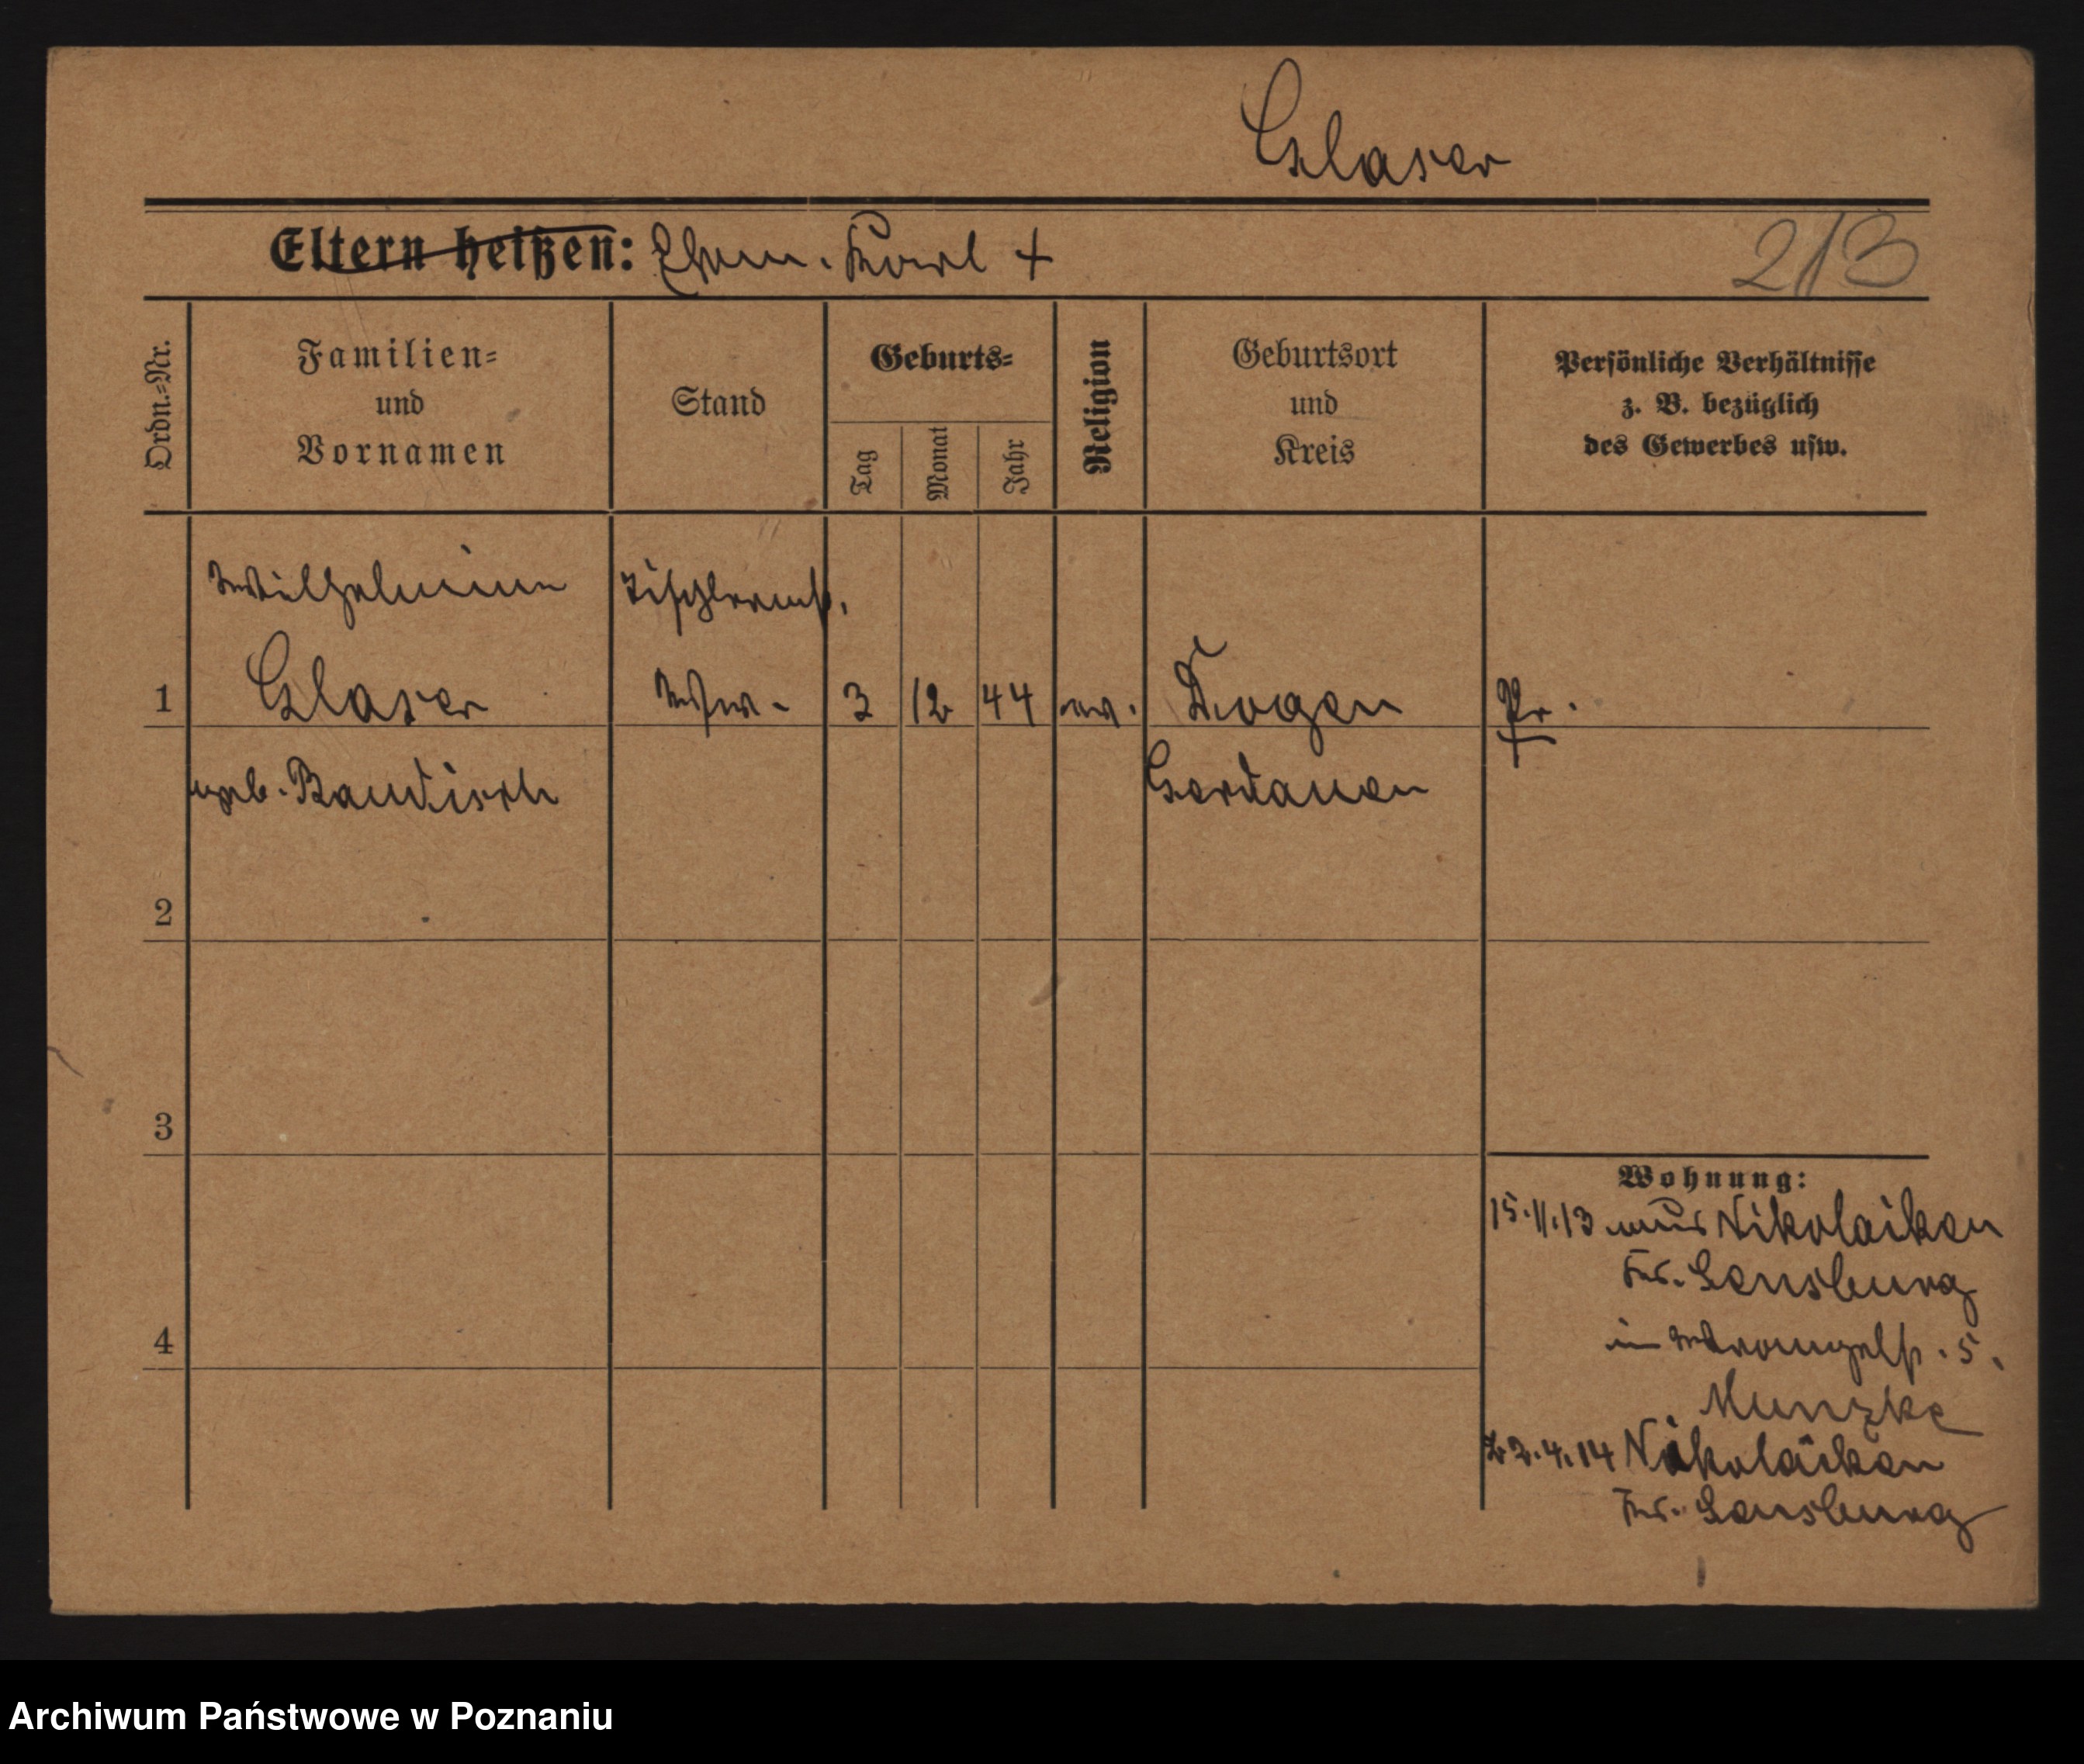 Glaser
Eltern heißen: Ehem. Karl +
213
Ordn.=Nr.
Familien=
und
Vornamen
Stand
Geburts=
Tag
Monat
Jahr
Religion
Geburtsort
und
Kreis
Persönliche Verhältnisse
z. B. bezüglich
des Gewerbes usw.
Wilhelmine Tischlermst.
1 Glaser Wwe. 3 12 44 ev. Dogen Pr.
geb. Baudisch Gerdauen
2
3
4
Wohnung:
15.11.13 aus Nikolaiken
Krs. Sensburg
in Wrangelst. 5.
Munzke
22.4.14 Nikolaiken
Krs. Sensburg
Archiwum Państwowe w Poznaniu